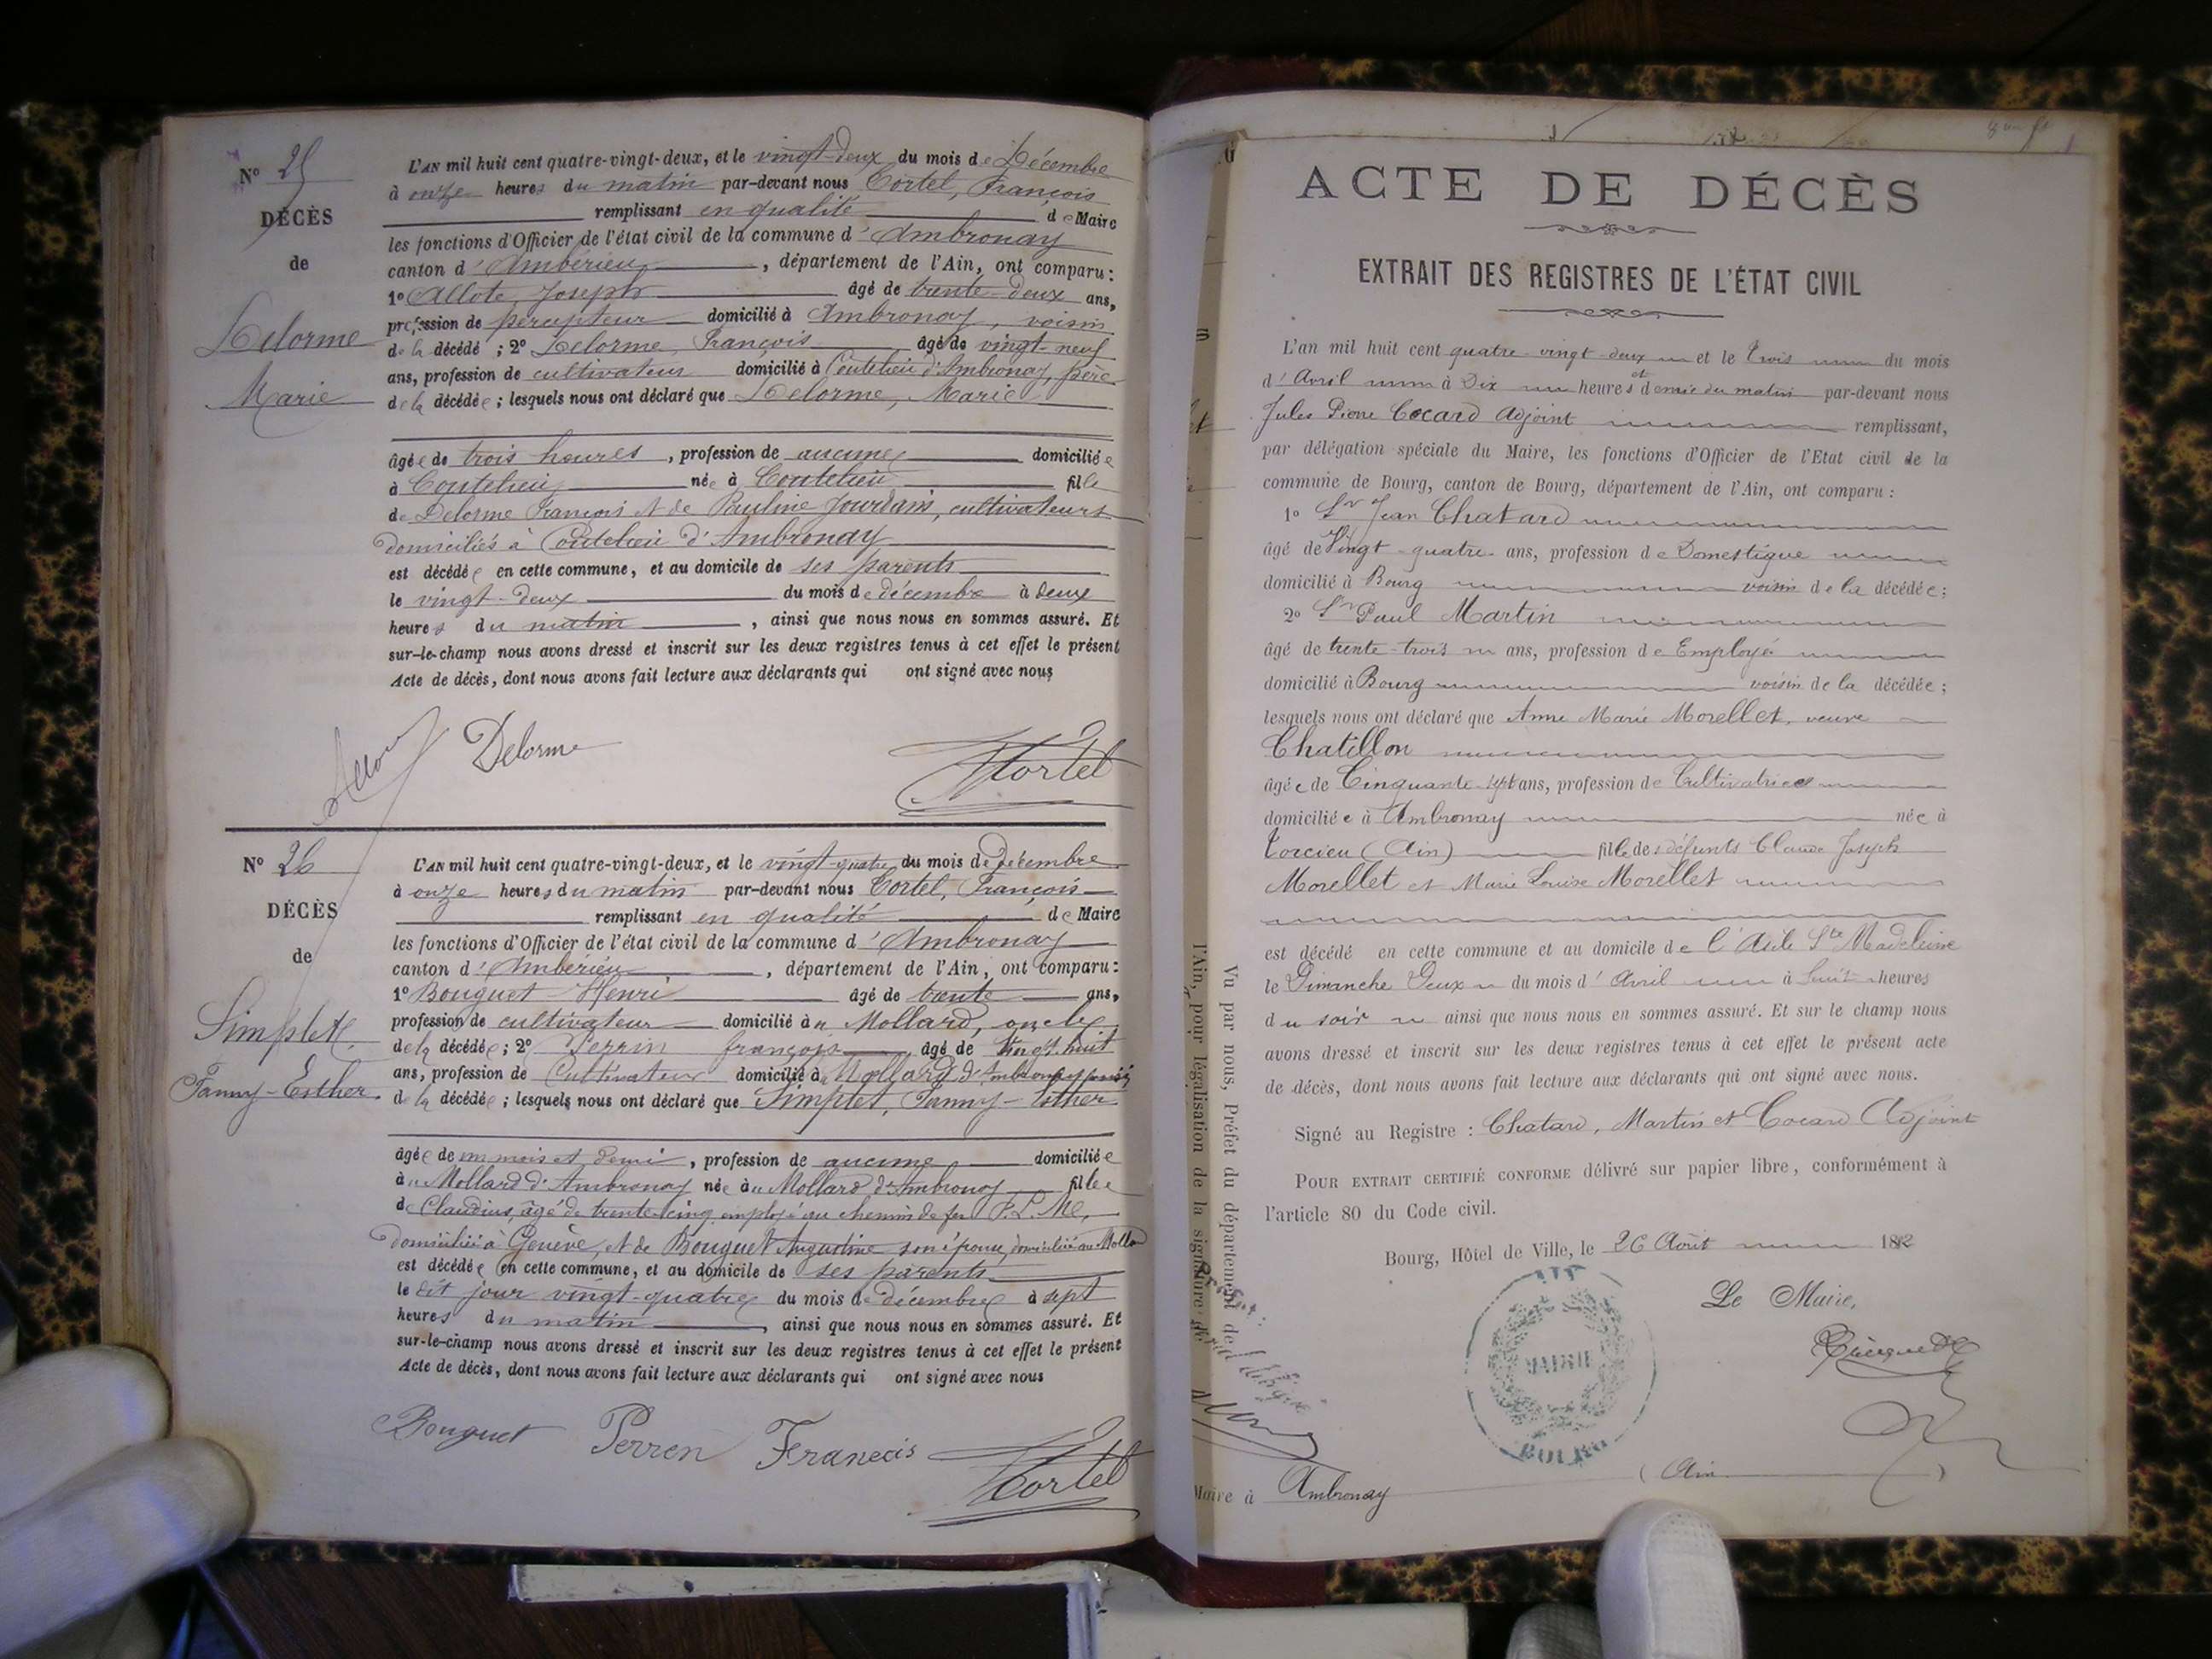 N° 25
DÉCÈS
de
Delorme
Marie
L'AN mil huit cent quatre-vingt-deux, et le vingt-deux du mois de Décembre
à onze heures du matin par-devant nous Cortel, François
remplissant en qualité de Maire
les fonctions d'Officier de l'état civil de la commune d'Ambronay
canton d'Ambérieu, département de l'Ain, ont comparu :
1° Allote, Joseph âgé de trente-deux ans,
profession de percepteur domicilié à Ambronay, voisin
de la décédé ; 2° Delorme, François âgé de vingt-neuf
ans, profession de cultivateur domicilié à Coutelieu d'Ambronay, père
de la décédée ; lesquels nous ont déclaré que Delorme, Marie
âgée de trois heures, profession de aucune domiciliée
à Coutelieu née à Coutelieu fille
de Delorme François et de Pauline Jourdain, cultivateurs
domiciliés à Coutelieu d'Ambronay
est décédée en cette commune, et au domicile de ses parents
le vingt-deux du mois de décembre à deux
heures du matin, ainsi que nous nous en sommes assuré. Et
sur-le-champ nous avons dressé et inscrit sur les deux registres tenus à cet effet le présent
Acte de décès, dont nous avons fait lecture aux déclarants qui ont signé avec nous
Delorme Cortel
N° 26
DÉCÈS
de
Simplet
Fanny-Esther
L'AN mil huit cent quatre-vingt-deux, et le vingt-quatre du mois de décembre
à onze heures du matin par-devant nous Cortel, François
remplissant en qualité de Maire
les fonctions d'Officier de l'état civil de la commune d'Ambronay
canton d'Ambérieu, département de l'Ain, ont comparu :
1° Bouguet Henri âgé de trente ans,
profession de cultivateur domicilié au Mollard, oncle
de la décédée ; 2° Perrin françois âgé de vingt huit
ans, profession de Cultivateur domicilié au Mollard d'Ambronay
de la décédée ; lesquels nous ont déclaré que Simplet, Fanny-Esther
âgée de un mois et demi, profession de aucune domiciliée
au Mollard d'Ambronay née au Mollard d'Ambronay fille
de Claudius, âgé de trente-cinq employé au chemin de fer P. L. M.,
domicilié à Genève, et de Bouguet Augustine son épouse, domiciliée au Mollard
est décédée en cette commune, et au domicile de ses parents
le dit jour vingt-quatre du mois de décembre à sept
heures du matin, ainsi que nous nous en sommes assuré. Et
sur-le-champ nous avons dressé et inscrit sur les deux registres tenus à cet effet le présent
Acte de décès, dont nous avons fait lecture aux déclarants qui ont signé avec nous
Bouguet Perren Francois Cortel
ACTE DE DÉCÈS
EXTRAIT DES REGISTRES DE L'ÉTAT CIVIL
L'an mil huit cent quatre-vingt-deux et le trois du mois
d'Avril à Dix heures et demie du matin par-devant nous
Jules Pierre Cocard Adjoint remplissant,
par délégation spéciale du Maire, les fonctions d'Officier de l'Etat civil de la
commune de Bourg, canton de Bourg, département de l'Ain, ont comparu :
1° Sr Jean Chatard
âgé de Vingt-quatre ans, profession de Domestique
domicilié à Bourg voisin de la décédée ;
2° Sr Paul Martin
âgé de trente-trois ans, profession de Employé
domicilié à Bourg voisin de la décédée ;
lesquels nous ont déclaré que Anne Marie Morellet, veuve
Chatillon
âgée de Cinquante-sept ans, profession de Cultivatrice
domiciliée à Ambronay née à
Torcieu (Ain) fille de défunts Claude Joseph
Morellet et Marie Louise Morellet
est décédé en cette commune et au domicile de l'Asile Ste Madeleine
le Dimanche Deux du mois d'Avril à huit heures
du soir ainsi que nous nous en sommes assuré. Et sur le champ nous
avons dressé et inscrit sur les deux registres tenus à cet effet le présent acte
de décès, dont nous avons fait lecture aux déclarants qui ont signé avec nous.
Signé au Registre : Chatard, Martin et Cocard Adjoint
POUR EXTRAIT CERTIFIÉ CONFORME délivré sur papier libre, conformément à
l'article 80 du Code civil.
Bourg, Hôtel de Ville, le 26 Août 1882
Le Maire,
MAIRIE
BOURG
Maire à Ambronay (Ain)
Vu par nous, Préfet du département de
l'Ain, pour légalisation de la signature de